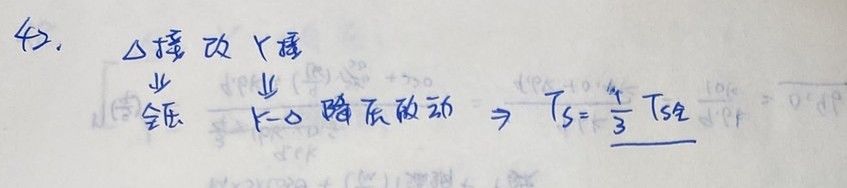 42. △接改Y接
⇓ ⇓
全压 Y-△降压启动 ⇒ Ts = 1/3 Ts全